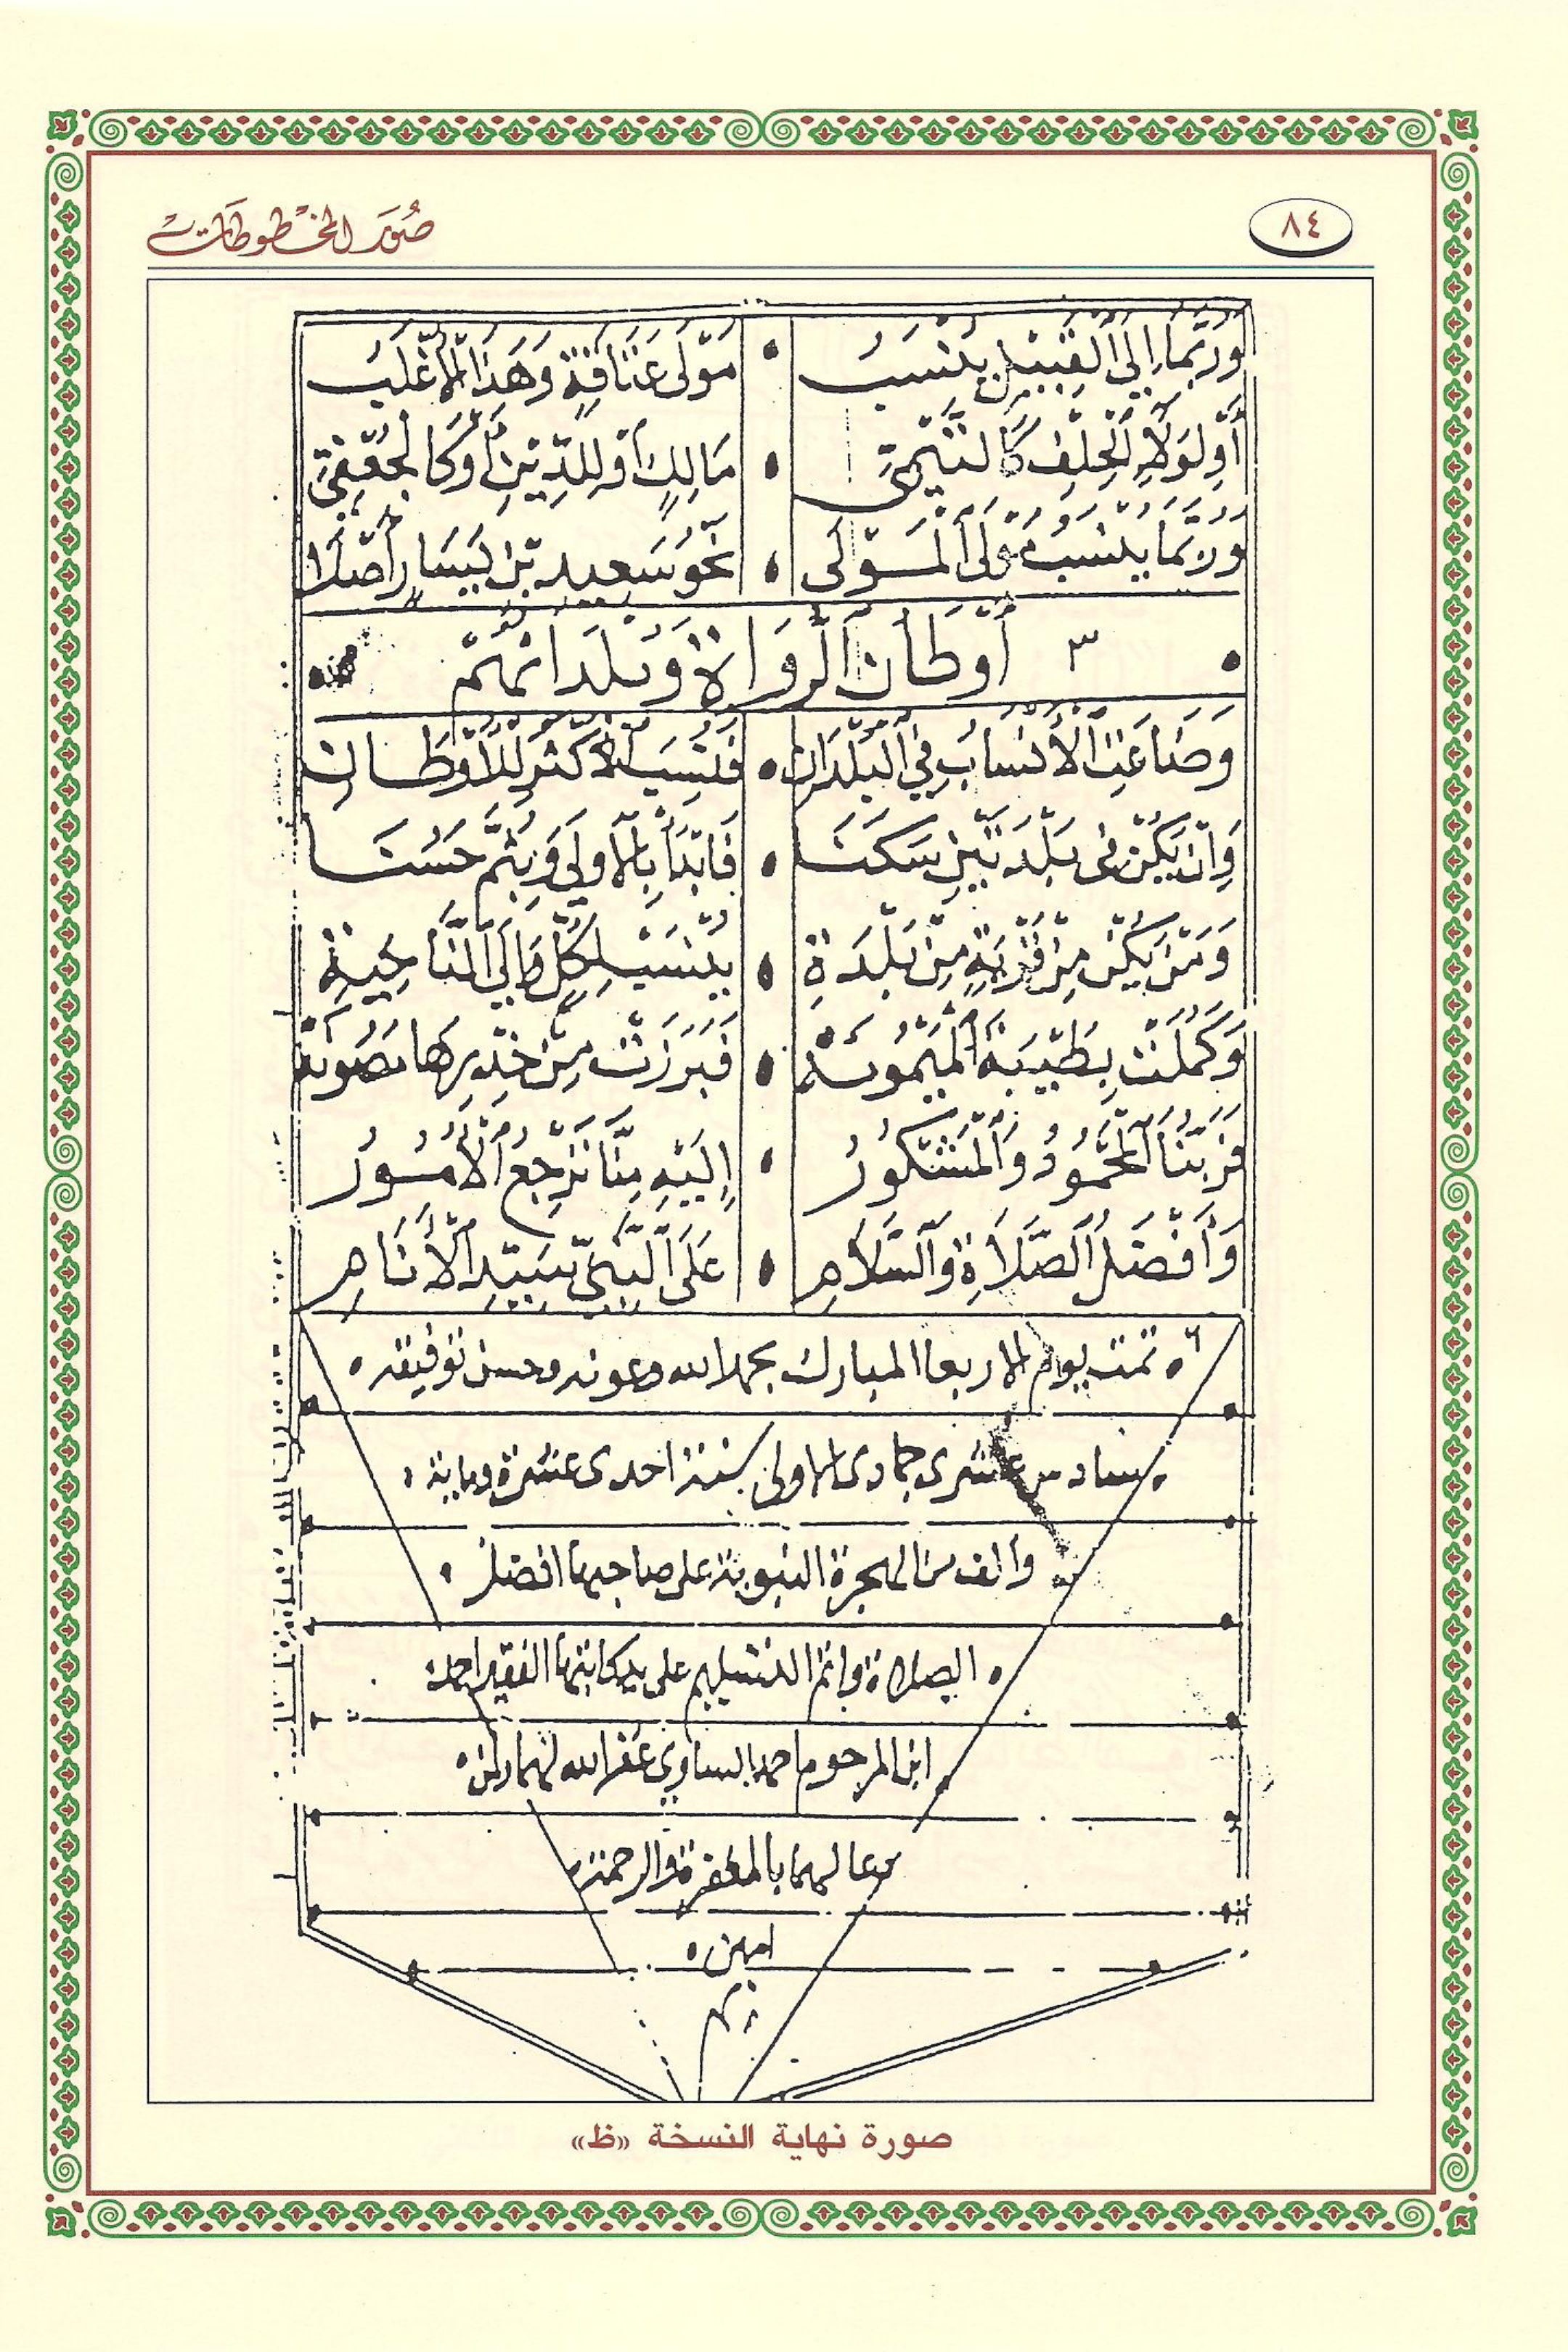 ٨٤
صُوَر المخطوطات
وَرُبَّمَا إِلَى الْقَبِيلِ يُنْسَبُ • مَوْلَى عَتَاقَةٍ وَهَذَا الْأَغْلَبُ
أَوْ لِوَلَاءِ الْحِلْفِ كَالتَّيْمِيِّ • مَالِكٍ أَوْ لِلدِّينِ أَوْ كَالْجُعْفِيِّ
وَرُبَّمَا يُنْسَبُ مَوْلَى الْمَوْلَى • نَحْوُ سَعِيدِ بْنِ يَسَارٍ أَصْلَا
• أَوْطَانُ الرُّوَاةِ وَبُلْدَانُهُمْ •
وَضَاعَتِ الْأَنْسَابُ فِي الْبُلْدَانِ • فَنُسِبَ الْأَكْثَرُ لِلْأَوْطَانِ
وَإِنْ يَكُنْ فِي بَلْدَتَيْنِ سَكَنَا • فَابْدَأْ بِالْأُولَى وَبِثُمَّ حَسُنَا
وَمَنْ يَكُنْ مِنْ قَرْيَةٍ مِنْ بَلْدَةِ • يُنْسَبْ لِكُلٍّ وَإِلَى النَّاحِيَةِ
وَكَمُلَتْ بِطَيْبَةَ الْمَيْمُونَهْ • فَبَرَزَتْ مِنْ خِدْرِهَا مَصُونَهْ
فَرَبُّنَا الْمَحْمُودُ وَالْمَشْكُورُ • إِلَيْهِ مِنَّا تَرْجِعُ الْأُمُورُ
وَأَفْضَلُ الصَّلَاةِ وَالسَّلَامِ • عَلَى النَّبِيِّ سَيِّدِ الْأَنَامِ
تمت يوم الاربعا المبارك بحمد الله وعونه وحسن توفيقه
سادس عشرى جمادى الاولى سنة احدى عشرة وماية
والف من الهجرة النبوية على صاحبها افضل
الصلاة واتم التسليم على يد كاتبها الفقير احمد
ابن المرحوم احمد السناوي غفر الله لهما ولمن
دعا لهما بالمغفرة والرحمة
امين
صورة نهاية النسخة «ظ»